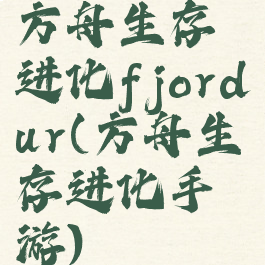 方舟生存
进化fjord
ur(方舟生
存进化手
游)